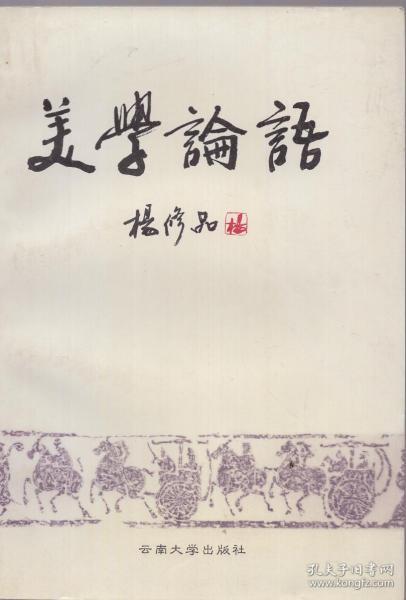 美學論語
楊修品
楊
云南大学出版社
孔夫子旧书网